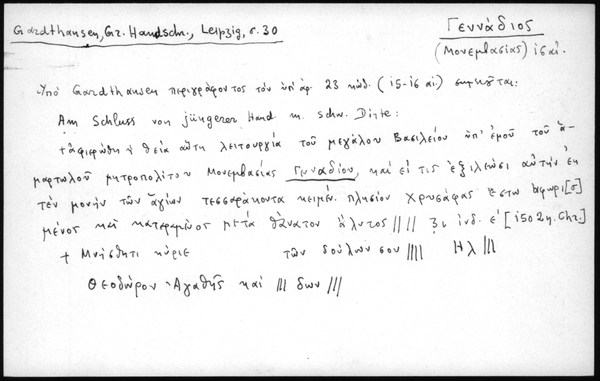 Gardthausen, Gr. Handschr., Leipzig, σ. 30
Γεννάδιος
(Μονεμβασίας) ις αἰ.
Ὑπὸ Gardthausen περιγράφοντος τὸν ὑπ' ἀρ. 23 κώδ. (15-16 αἰ.) σημειοῦται:
Am Schluss von jüngerer Hand m. schw. Dinte:
ἡ θεία αὕτη λειτουργία τοῦ μεγάλου Βασιλείου ὑπ' ἐμοῦ τοῦ ἁ-
μαρτωλοῦ μητροπολίτου Μονεμβασίας Γενναδίου, καὶ εἴ τις ἐξιλεώσι αὐτὴν ἐκ
τὲν μονὴν τῶν ἁγίων τεσσαράκοντα κειμέν. πλησίον Χρυσάφας ἔστω ἀφωρι[σ]
μένος καὶ κατηραμένος μετὰ θάνατον ἄλυτος //// ζι ἰνδ. ε' [1502 n. Chr.]
+ Μνήσθητι κύριε τῶν δούλων σου //// Ηλ ///
Θεοδώρου Ἀγαθῆς καὶ /// δων ///